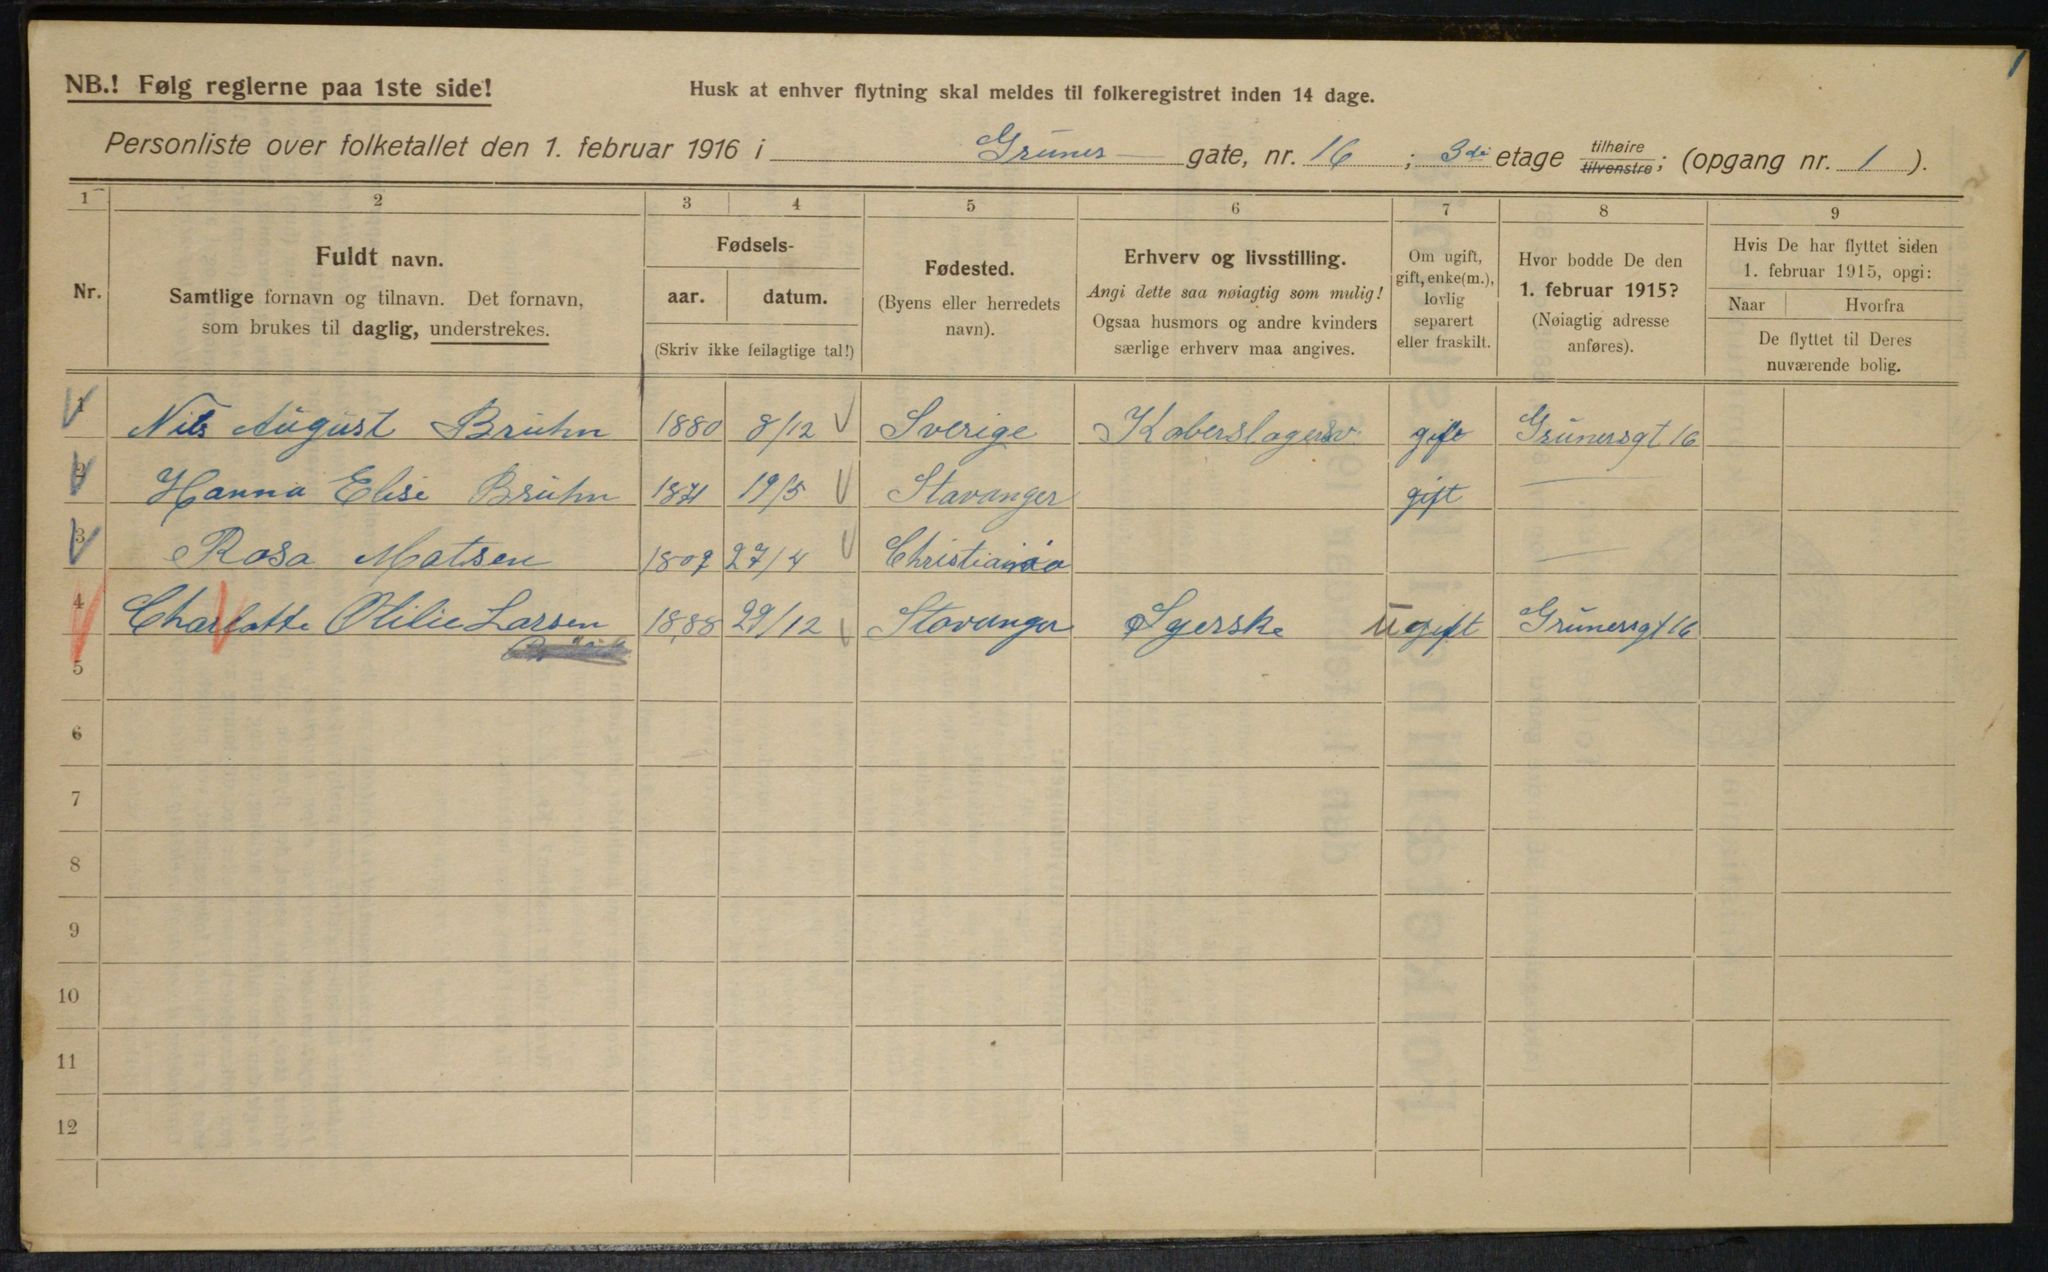 NB.! Følg reglerne paa 1ste side!
Husk at enhver flytning skal meldes til folkeregistret inden 14 dage.
Personliste over folketallet den 1. februar 1916 i Grüners gate, nr. 16; 3de etage tilhøire tilvenstre; (opgang nr. 1).
1 2 3 4 5 6 7 8 9
Nr.
Fuldt navn.
Samtlige fornavn og tilnavn. Det fornavn,
som brukes til daglig, understrekes.
Fødsels-
aar. datum.
(Skriv ikke feilagtige tal!)
Fødested.
(Byens eller herredets
navn).
Erhverv og livsstilling.
Angi dette saa nøiagtig som mulig!
Ogsaa husmors og andre kvinders
særlige erhverv maa angives.
Om ugift,
gift, enke(m.),
lovlig
separert
eller fraskilt.
Hvor bodde De den
1. februar 1915?
(Nøiagtig adresse
anføres).
Hvis De har flyttet siden
1. februar 1915, opgi:
Naar Hvorfra
De flyttet til Deres
nuværende bolig.
1 Nils August Brühn 1880 8/12 Sverige Koberslagersv. gift Grünersgt 16
2 Hanna Elise Brühn 1871 19/5 Stavanger gift —
3 Rosa Matsen 27/4 Christiania —
4 Charlotte Otilie Larsen 1888 29/12 Stavanger Syerske Ugift Grünersgt 16
5
6
7
8
9
10
11
12